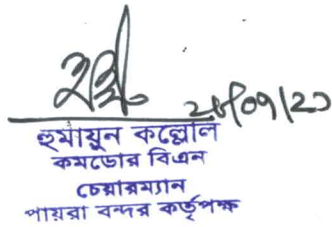 হুমায়ুন কল্লোল
কমডোর বিএন
চেয়ারম্যান
পায়রা বন্দর কর্তৃপক্ষ